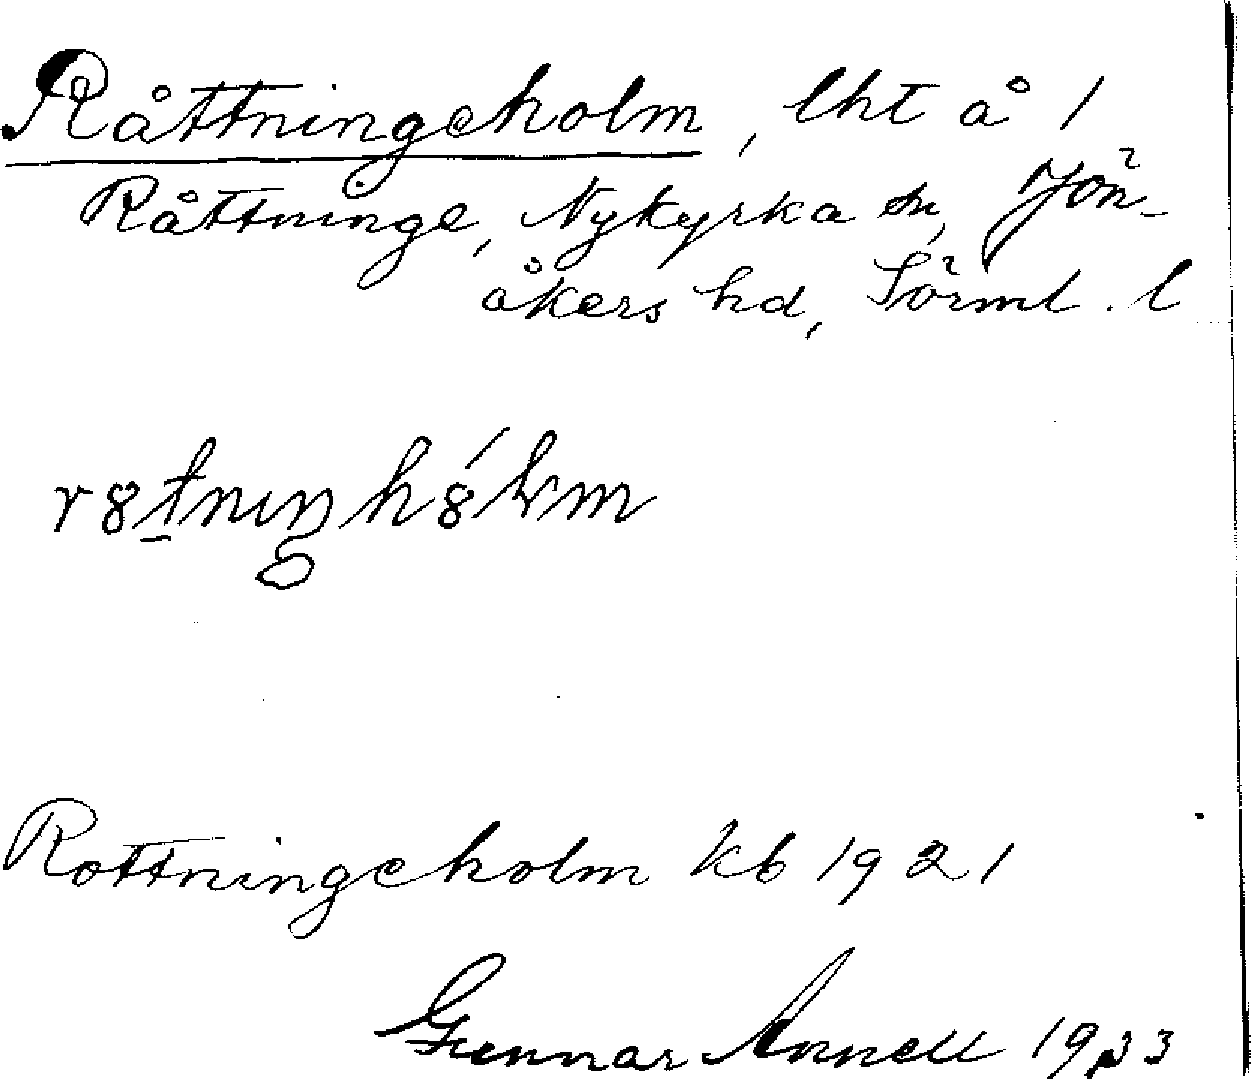 Råttningeholm, lht å 1
Råttninge, Nykyrka sn, Jön-
åkers hd, Sörml. l
Rottningeholm kb 1921
Gunnar Annell 1933